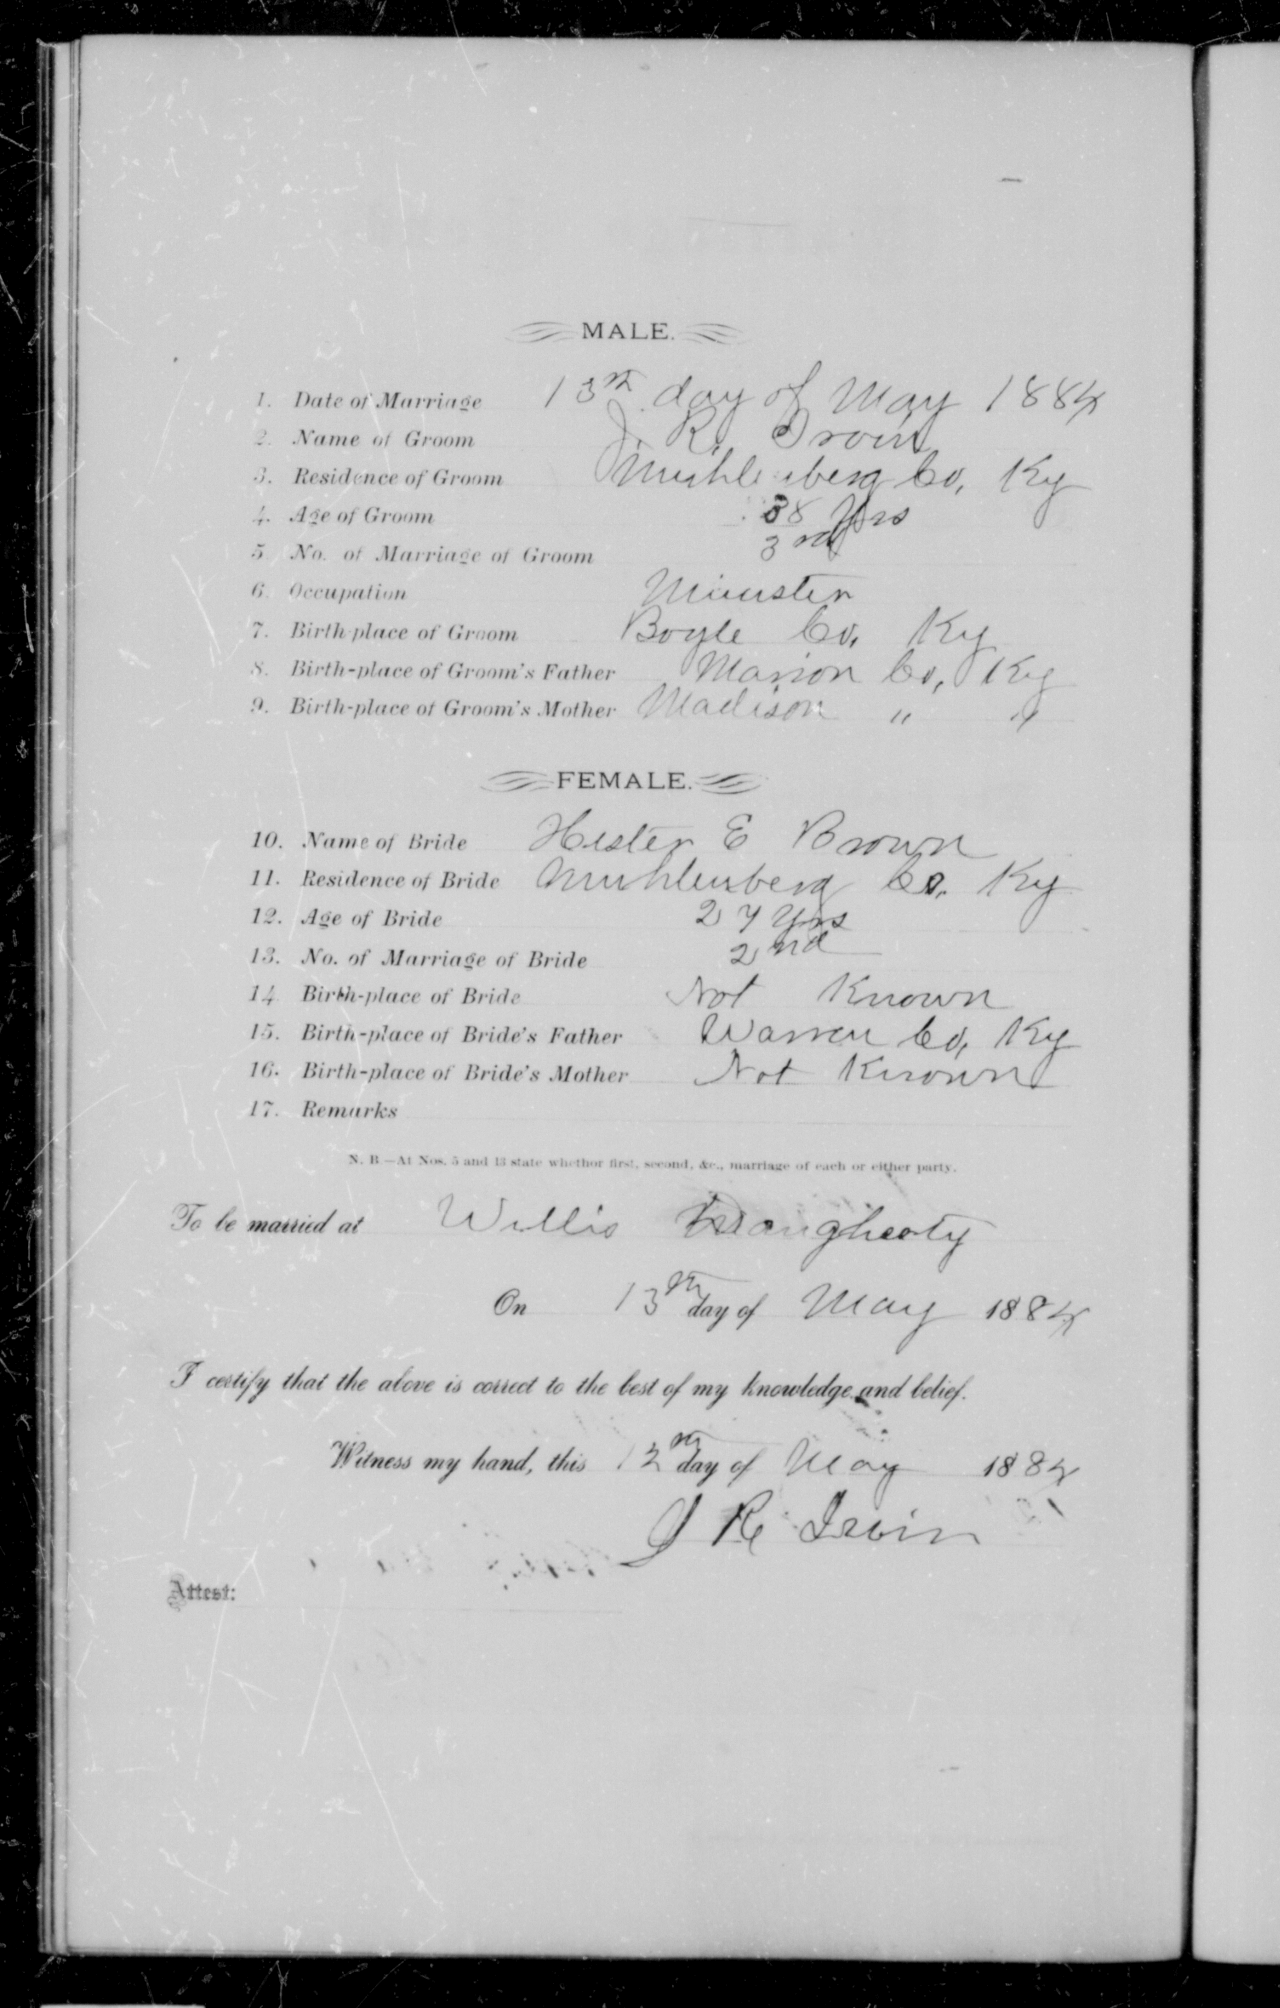 MALE.
1. Date of Marriage 13th day of May 1884
2. Name of Groom J. R. Irvin
3. Residence of Groom Muhlenberg Co, Ky
4. Age of Groom 38 Yrs
5 No. of Marriage of Groom 3rd
6. Occupation Minister
7. Birth-place of Groom Boyle Co, Ky
8. Birth-place of Groom's Father Marion Co, Ky
9. Birth-place of Groom's Mother Madison " "
FEMALE.
10. Name of Bride Hester E Brown
11. Residence of Bride Muhlenberg Co. Ky
12. Age of Bride 27 Yrs
13. No. of Marriage of Bride 2nd
14 Birth-place of Bride Not Known
15. Birth-place of Bride's Father Warren Co, Ky
16. Birth-place of Bride's Mother Not Known
17. Remarks
N. B.—At Nos. 5 and 13 state whether first, second, &c., marriage of each or either party.
To be married at Willis Daugherty
On 13th day of May 1884
I certify that the above is correct to the best of my knowledge and belief.
Witness my hand, this 12th day of May 1884
J R Irvin
Attest: